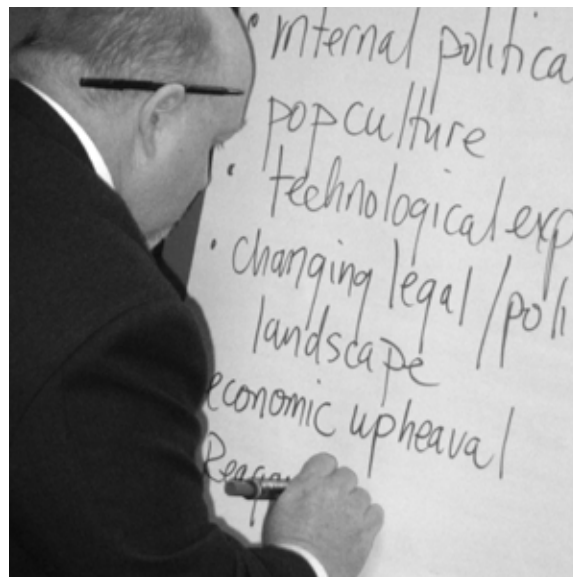 • internal politica
pop culture
• technological exp
• changing legal / poli
landscape
economic upheaval
Reaga